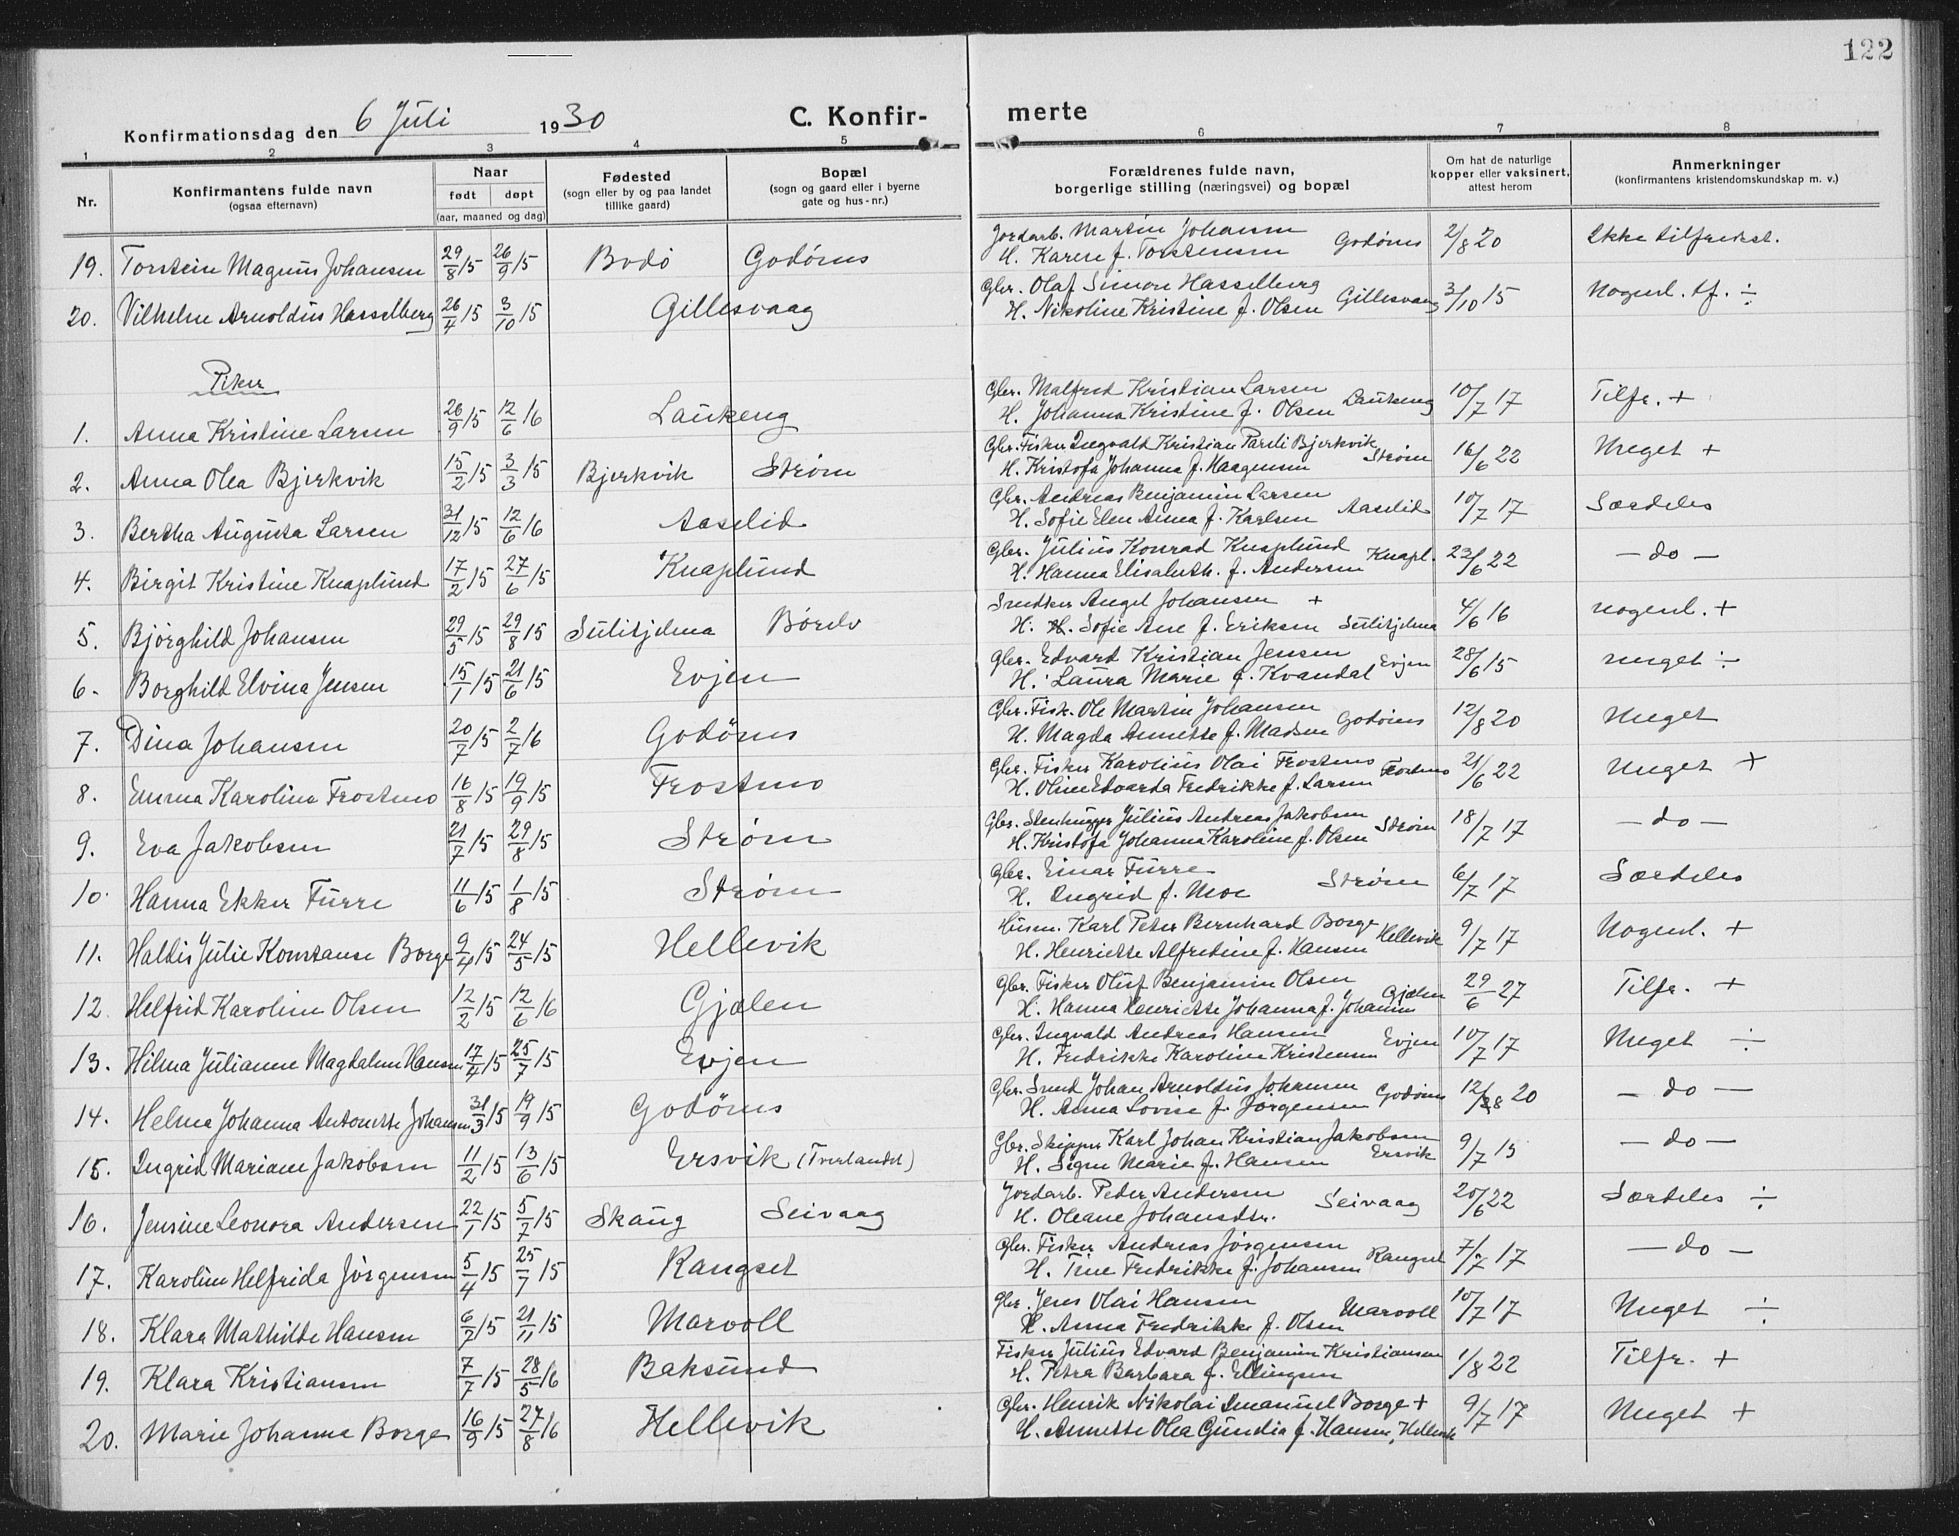 122
Konfirmationsdag den 6 Juli 1930 C. Konfir- merte
1 2 3 4 5 6 7 8
Nr. Konfirmantens fulde navn (ogsaa efternavn) Naar født døpt (aar, maaned og dag) Fødested (sogn eller by og paa landet tillike gaard) Bopæl (sogn og gaard eller i byerne gate og hus-nr.) Forældrenes fulde navn, borgerlige stilling (næringsvei) og bopæl Om hat de naturlige kopper eller vaksinert, attest herom Anmerkninger (konfirmantens kristendomskundskap m. v.)
19. Torstein Magnus Johansen 29/8 15 26/9 15 Bodö Godönes Jordarb. Martin Johansen H. Karen f. Torstensen Godönes 2/8 20 Ikke tilfredsst.
20. Vilhelm Arnoldus Hasselberg 26/4 15 3/10 15 Gillesvaag Gbr. Olaf Simon Hasselberg H. Nikoline Kristine f. Olsen Gillesvaag 3/10 15 Nogenl. tf. ÷
Piker
1. Anna Kristine Larsen 26/9 15 12/6 16 Laukeng Gbr. Malfred Kristian Larsen H. Johanna Kristine f. Olsen Laukeng 10/7 17 Tilfr. +
2. Anna Olea Bjerkvik 15/2 15 3/3 15 Bjerkvik Strøm Gbr. Fisker Ingvald Kristian Pareli Bjerkvik H. Kristofa Johanna f. Haagensen Strøm 16/6 22 Meget +
3. Bertha Augusta Larsen 31/12 15 12/6 16 Aaselid Gbr. Andreas Benjamin Larsen H. Sofie Elen Anna f. Karlsen Aaselid 10/7 17 Særdeles
4. Birgit Kristine Knaplund 17/2 15 27/6 15 Knaplund Gbr. Julius Konrad Knaplund H. Hanna Elisabeth. f. Andersen Knapl. 23/6 22 - do -
5. Bjørghild Johansen 29/5 15 29/8 15 Sulitjelma Børelv Snedker Angel Johansen + H. Sofie Ane f. Eriksen Sulitjelma 4/6 16 nogenl. +
6. Borghild Elvina Jensen 15/1 15 21/6 15 Evjen Gbr. Edvard Kristian Jensen H. Laura Marie f. Kvandal Evjen 28/6 15 meget ÷
7. Dina Johansen 20/7 15 2/7 16 Godönes Gbr. Fisk. Ole Martin Johansen H. Magda Annette f. Madsen Godönes 12/8 20 Meget
8. Emma Karoline Frostmo 16/8 15 19/9 15 Frostmo Gbr. Fisker Karolius Olai Frostmo H. Oline Edvarda Fredrikke f. Larsen Frostmo 21/6 22 Meget +
9. Eva Jakobsen 21/7 15 29/8 15 Strøm Gbr. Stenhugger Julius Andreas Jakobsen H. Kristofa Johanna Karoline f. Olsen Strøm 18/7 17 - do -
10. Hanna Ekker Furre 11/6 15 1/8 15 Strøm Gbr. Einar Furre H. Ingrid f. Moe Strøm 6/7 17 Særdeles
11. Haldis Julie Konstanse Borge 9/4 15 24/5 15 Hellevik Husm. Karl Peter Bernhard Borge H. Henriette Alfredine f. Hansen Hellevik 9/7 17 Nogenl. +
12. Helfrid Karoline Olsen 12/2 15 12/6 16 Gjælen Gbr. Fisker Oluf Benjamin Olsen H. Hanna Henriette Johanna f. Johansen Gjælen 29/6 27 Tilfr. +
13. Hilma Julianne Magdalene Hansen 17/4 15 25/7 15 Evjen Gbr. Ingvald Andreas Hansen H. Fredrikke Karoline Kristensen Evjen 10/7 17 Meget ÷
14. Helma Johanna Antonette Johansen 31/3 15 19/9 15 Godönes Gbr. Smed Johan Arnoldus Johansen H. Anna Lovise f. Jörgensen Godönes 12/8 20 - do -
15. Ingrid Mariane Jakobsen 11/2 15 13/6 15 Ersvik (Tverlandet) Gbr. Skipper Karl Johan Kristian Jakobsen H. Signe Marie f. Hansen Ersvik 9/7 15 - do -
16. Jensine Leonora Andersen 22/1 15 5/7 15 Skaug Seivaag Jordarb. Peder Andersen H. Oleane Johansdtr. Seivaag 20/6 22 Særdeles ÷
17. Karoline Helfrida Jörgensen 5/4 15 25/7 15 Rangset Gbr. Fisker Andreas Jörgensen H. Tine Fredrikke f. Johansen Rangset 7/7 17 - do -
18. Klara Mathilde Hansen 6/7 15 21/11 15 Marvoll Gbr. Jens Olai Hansen H. Anna Fredrikke f. Olsen Marvoll 10/7 17 Meget ÷
19. Klara Kristiansen 7/7 15 28/5 16 Baksund Fisker Julius Edvard Benjamin Kristiansen H. Petra Barbara f. Ellingsen 1/8 22 Tilfr. +
20. Marie Johanna Borge 16/9 15 27/8 16 Hellevik Gbr. Henrik Nikolai Emanuel Borge + H. Annette Olea Gundia f. Hansen, Hellevik 9/7 17 Meget +